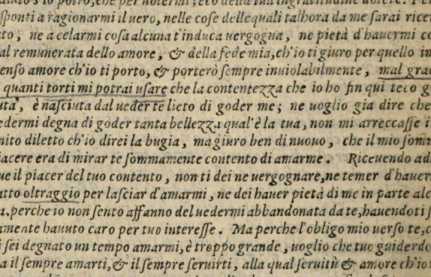 sponti a ragionarmi il uero, nelle cose dellequali talhora da me sarai rice
to, ne a celarmi cosa alcuna t'induca uergogna, ne pietà d'hauermi co
al remunerata dello amore, & della fede mia, ch'io ti giuro per quello im
enso amore ch'io ti porto, & porterò sempre inuiolabilmente, mal grad
quanti torti mi potrai usare che la contentezza che io ho fin qui teco g
uta, è nasciuta dal ueder te lieto di goder me; ne uoglio gia dire che
edermi degna di goder tanta bellezza qual'è la tua, non mi arreccasse i
nito diletto ch'io direi la bugia, ma giuro ben di nuouo, che il mio som
iacere era di mirar te sommamente contento di amarme. Riceuendo ad
ue il piacer del tuo contento, non ti dei ne uergognare, ne temer d'hauer
atto oltraggio per lasciar d'amarmi, ne dei hauer pietà di me in parte alc
a. perche io non sento affanno del uedermi abbandonata da te, hauendoti s
amente hauuto caro per tuo interesse. Ma perche l'obligo mio uerso te, c
i sei degnato un tempo amarmi, è troppo grande, uoglio che tuo guiderdo
a il sempre amarti, & il sempre seruirti, alla qual seruitù & amore ch'io